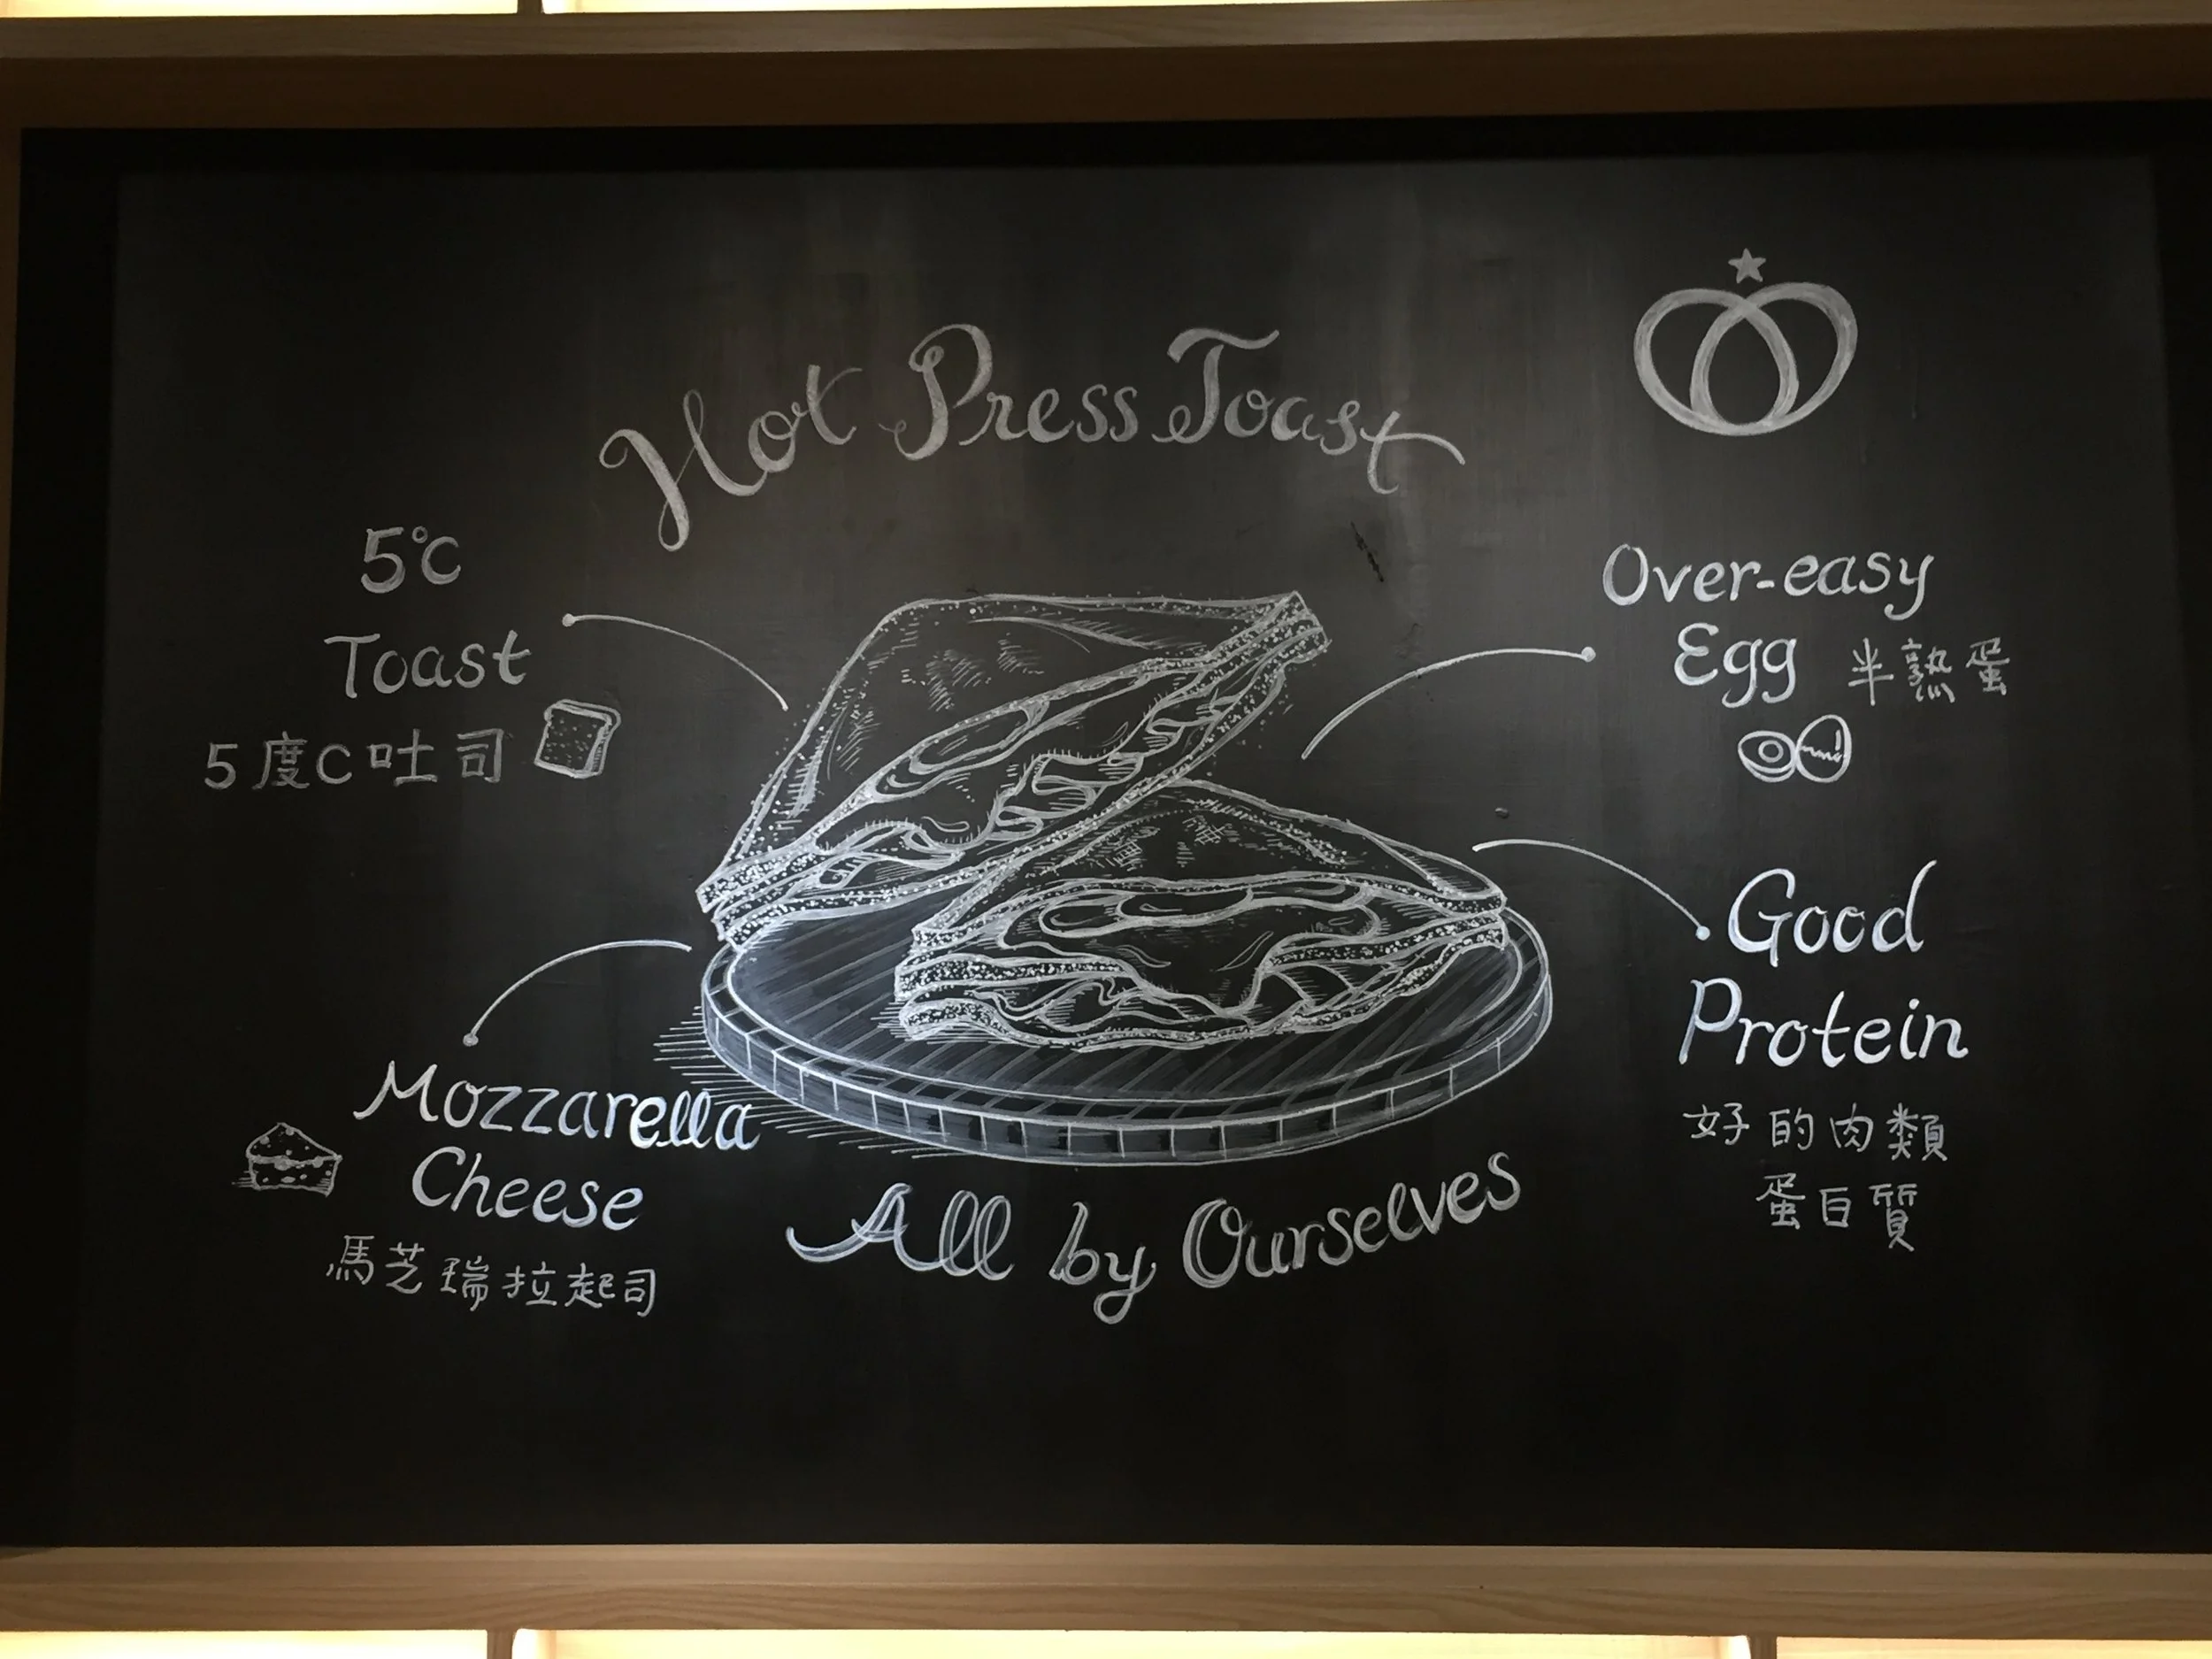 Hot Press Toast
5℃
Toast
5度C吐司
Over-easy
Egg 半熟蛋
Mozzarella
Cheese
馬芝瑞拉起司
Good
Protein
好的肉類
蛋白質
All by Ourselves